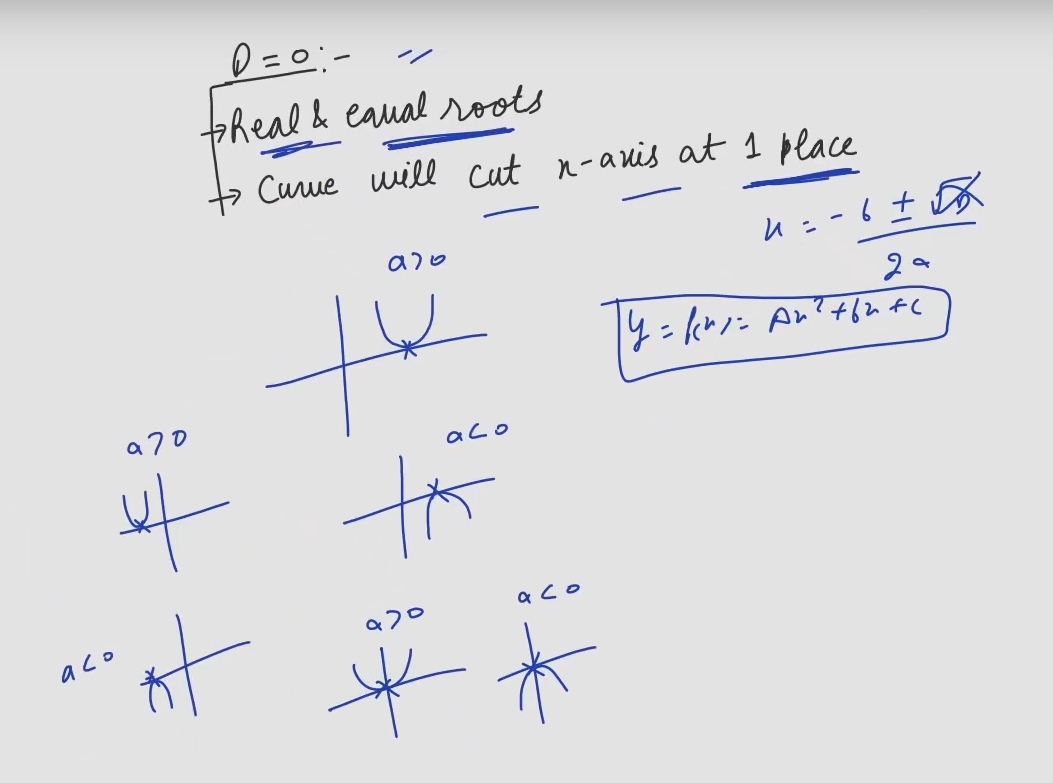 D = 0 :-
→ Real & equal roots
→ Curve will cut x-axis at 1 place
x = -b ± √D
2a
y = f(x) = Ax² + bx + c
a>0
a>0
a<0
a<0
a>0
a<0